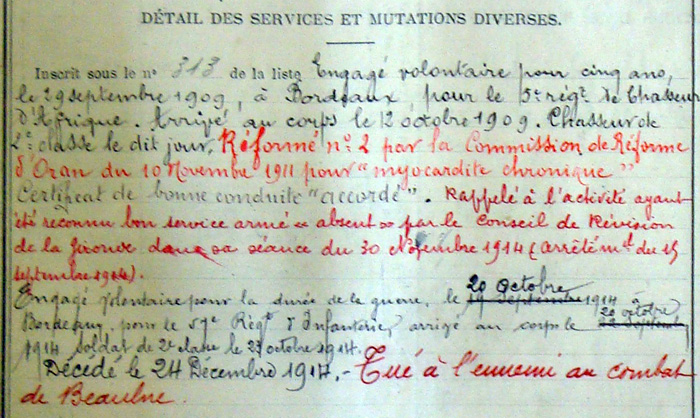 DÉTAIL DES SERVICES ET MUTATIONS DIVERSES.
Inscrit sous le n° 313 de la liste Engagé volontaire pour cinq ans,
le 29 septembre 1909, à Bordeaux pour le 5e régt de Chasseurs
d'Afrique. Arrivé au corps le 12 octobre 1909. Chasseur de
2e classe le dit jour, Réformé n° 2 par la Commission de Réforme
d'Oran du 10 Novembre 1911 pour "myocardite chronique"
Certificat de bonne conduite "accordé". Rappelé à l'activité ayant
été reconnu bon service armé "absent" par le Conseil de Révision
de la Gironde dans sa séance du 30 Novembre 1914 (arrêté mel du 15
septembre 1914).
20 octobre
Engagé volontaire pour la durée de la guerre, le 19 septembre 1914 à
20 octobre
Bordeaux, pour le 57e Régt d'Infanterie, arrivé au corps le 22 septembre
1914 soldat de 2e classe le octobre 1914.
Décédé le 24 Décembre 1914.- Tué à l'ennemi au combat
de Beaulne.